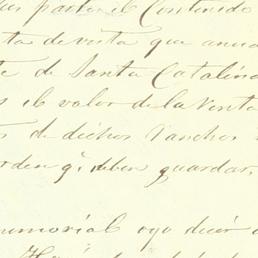 parte el Contenido
ta de vista que
de Santa Catalina
el valor de la Venta
de dichos Ranchos
orden q.e deben guardar.
memorial oyo decir